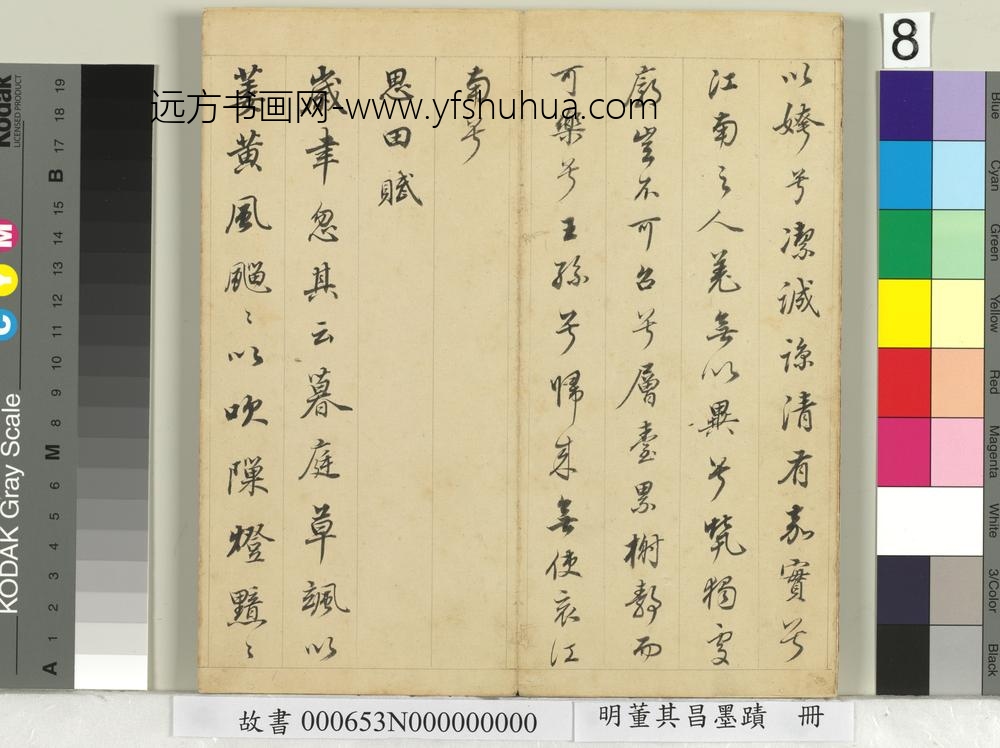 8
以姱兮潔誠諒清有嘉實兮
江南之人羌無以異兮煢獨處
廓豈不可召兮層臺累榭靜而
可樂兮王孫兮歸來無使哀江
南兮
思田賦
歲聿忽其云暮庭草颯以
萎黃風飀〻以吹隙燈黯〻
远方书画网-www.yfshuhua.com
故書 000653N000000000
明董其昌墨蹟 冊
Kodak
LICENSED PRODUCT
KODAK Gray Scale
C Y M
A 1 2 3 4 5 6 M 8 9 10 11 12 13 14 15 B 17 18 19
Blue
Cyan
Green
Yellow
Red
Magenta
White
3/Color
Black